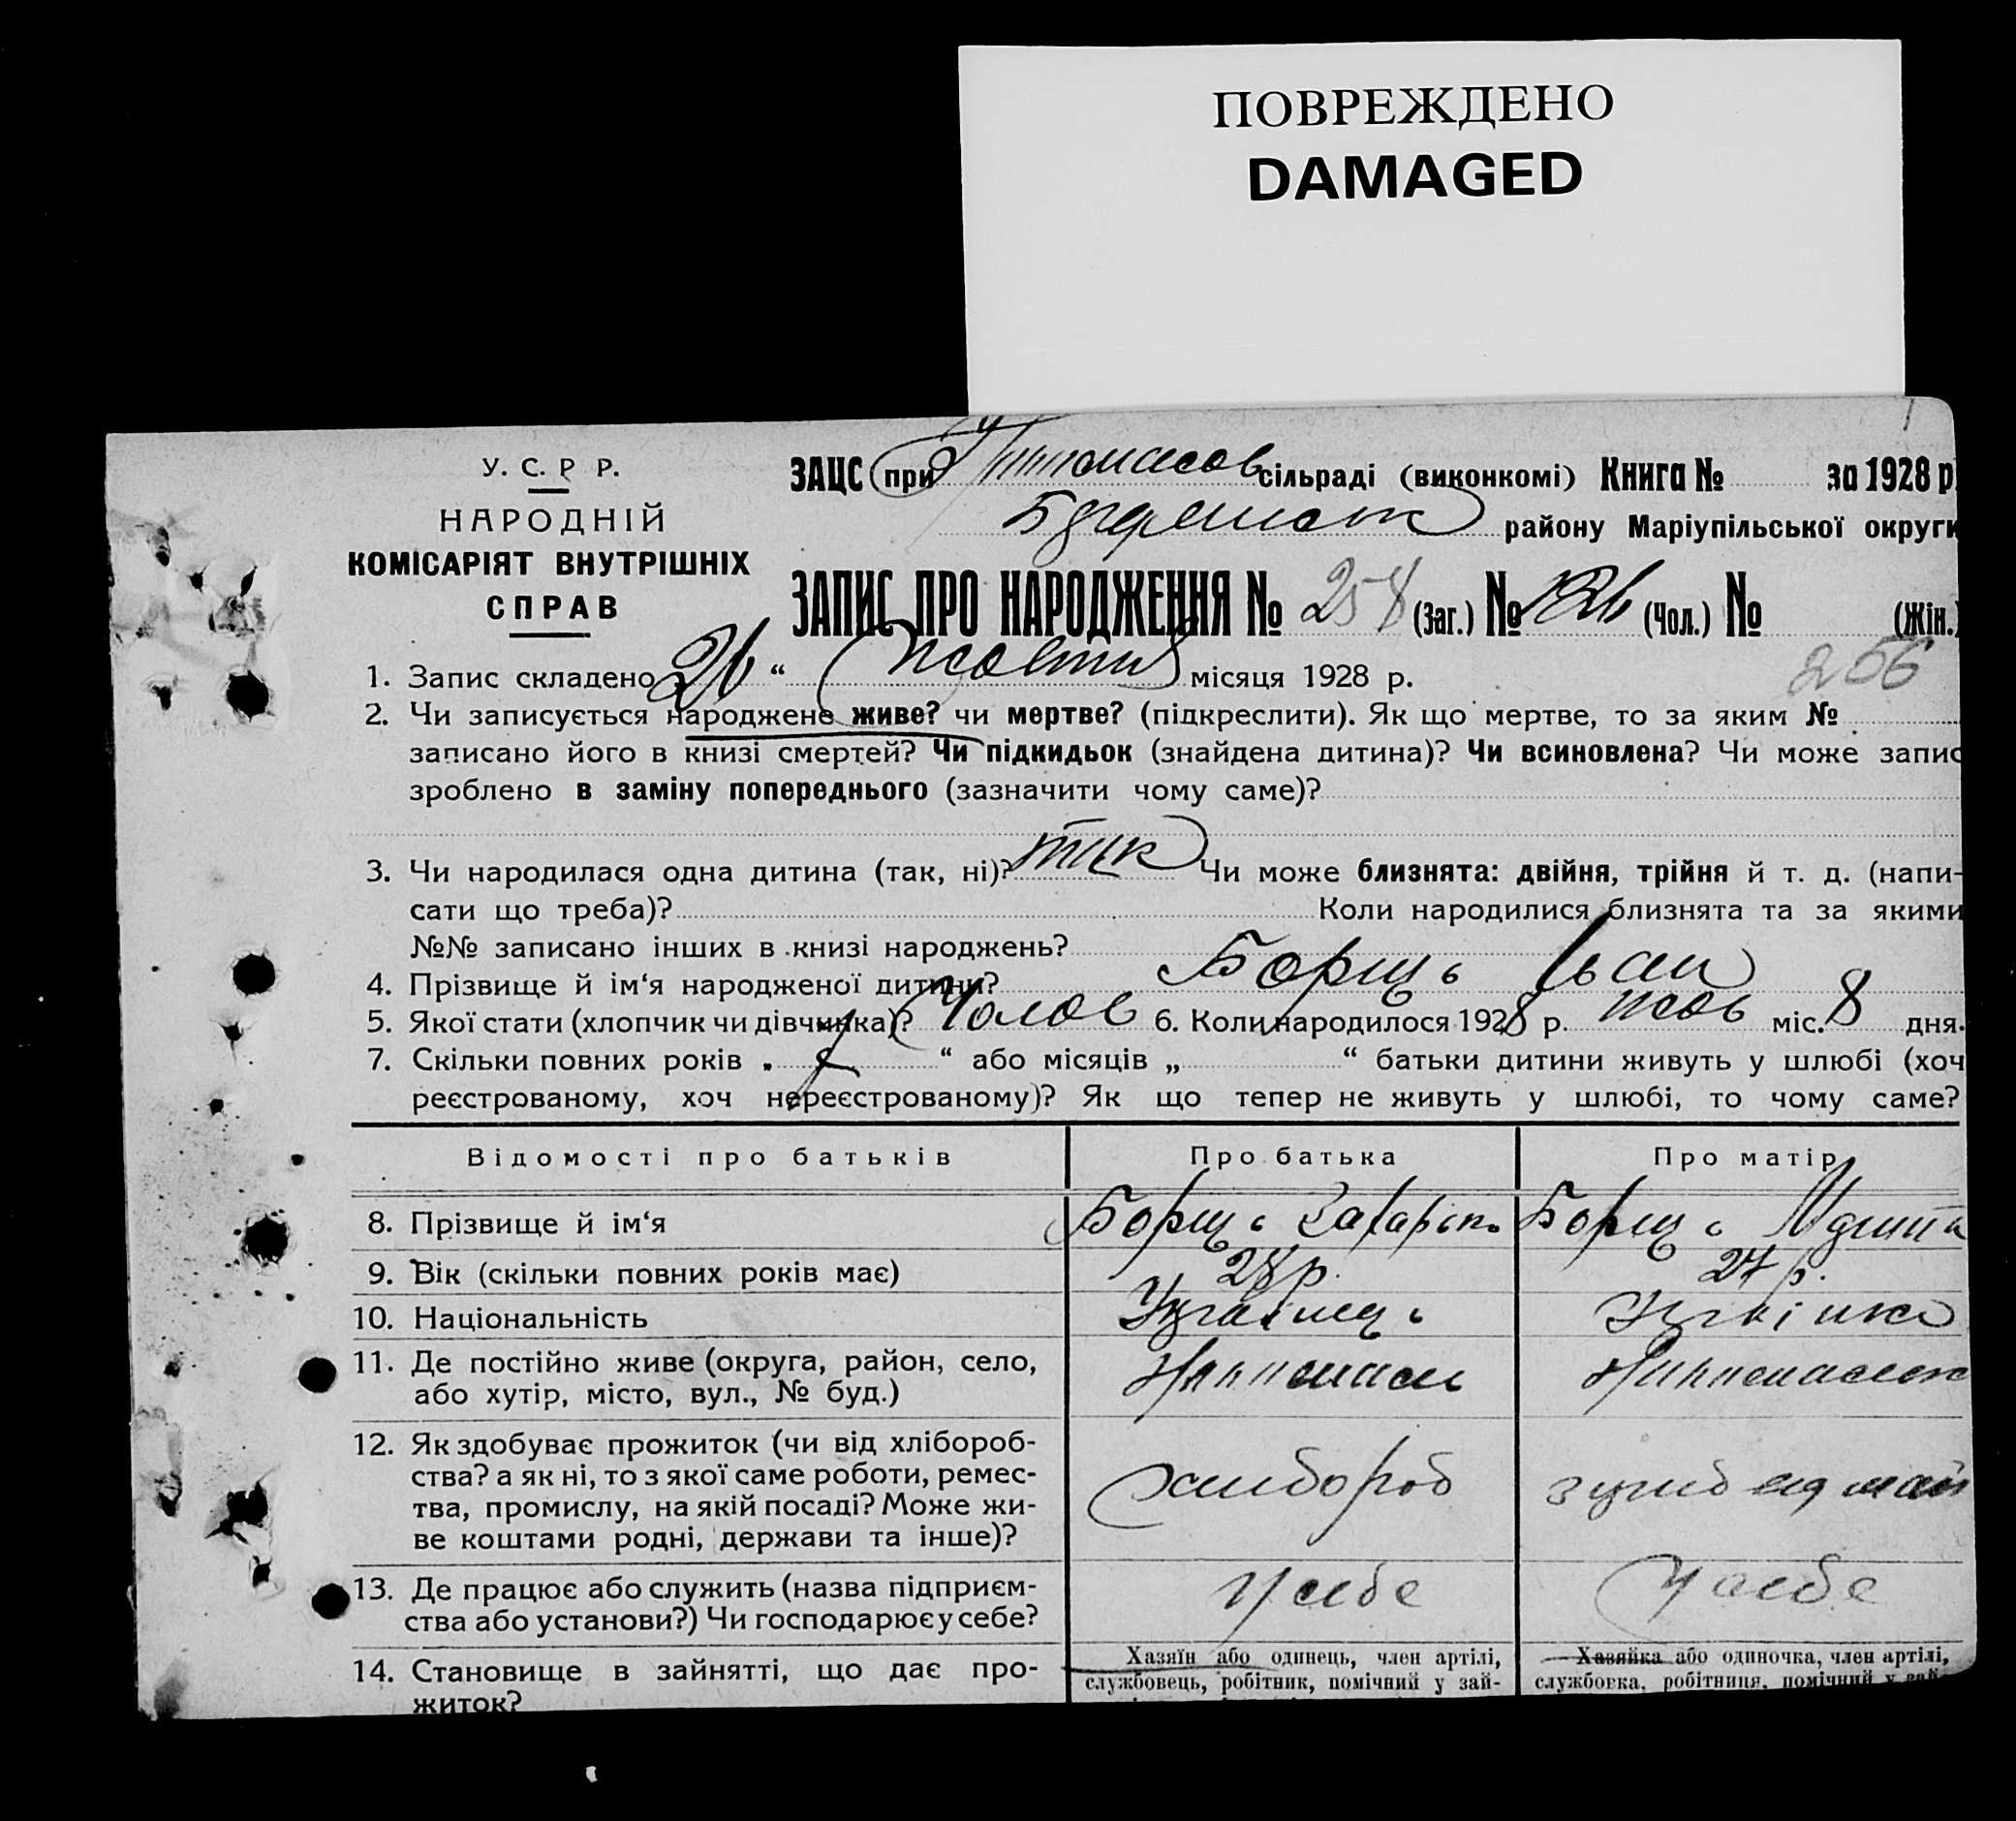 ПОВРЕЖДЕНО
DAMAGED
У. С. Р Р.
НАРОДНІЙ
КОМІСАРІЯТ ВНУТРІШНІХ
СПРАВ
ЗАЦС при сільраді (виконкомі) Книга № за 1928 р.
району Маріупільської округи
ЗАПИС ПРО НАРОДЖЕННЯ № 258 (Заг.) № 126 (Чол.) № (Жін.)
256
1. Запис складено 26 “ Жовтня місяця 1928 р.
2. Чи записується народжене живе? чи мертве? (підкреслити). Як що мертве, то за яким №
записано його в книзі смертей? Чи підкидьок (знайдена дитина)? Чи всиновлена? Чи може запис
зроблено в заміну попереднього (зазначити чому саме)?
3. Чи народилася одна дитина (так, ні)? так Чи може близнята: двійня, трійня й т. д. (напи-
сати що треба)? Коли народилися близнята та за якими
№№ записано інших в книзі народжень?
4. Прізвище й ім‘я народженої дитини? Борщь Іван
5. Якої стати (хлопчик чи дівчинка)? Чолов 6. Коли народилося 1928 р. жов міс. 8 дня.
7. Скільки повних років „ “ або місяців „ “ батьки дитини живуть у шлюбі (хоч
реєстрованому, хоч нереєстрованому)? Як що тепер не живуть у шлюбі, то чому саме?
Відомості про батьків Про батька Про матір
8. Прізвище й ім‘я Борщь Борщь
9. Вік (скільки повних років має) 28 р. 27 р.
10. Національність Українець
11. Де постійно живе (округа, район, село,
або хутір, місто, вул., № буд.)
12. Як здобуває прожиток (чи від хлібороб-
ства? а як ні, то з якої саме роботи, ремес-
тва, промислу, на якій посаді? Може жи-
ве коштами родні, держави та інше)?
хлибороб
13. Де працює або служить (назва підприєм-
ства або установи?) Чи господарює у себе?
У себе У себе
14. Становище в зайнятті, що дає про-
житок?
Хазяїн або одинець, член артілі,
службовець, робітник, помічний у зай-
Хазяйка або одиночка, член артілі,
службовка, робітниця, помічний у зай-